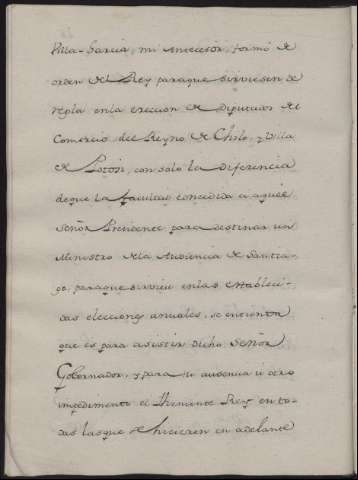 Villa-Garcia, mi antecesor, formó de
orden del Rey paraque sirviesen de
regla enla ereccion de Diputacion de
Comercio del Reyno de Chile, y Villa
de Potosi, con solo la diferencia
deque la facultad concedida a aquel
Señor Presidente para destinar un
Ministro dela Audiencia de Santia-
go, paraque sirviese enlas estableci-
das elecciones anuales, se entienda
que es para asistir dicho Señor
Gobernador, y para su ausencia u otro
impedimento el Theniente Rey en to-
das lasque se hicieren en adelante